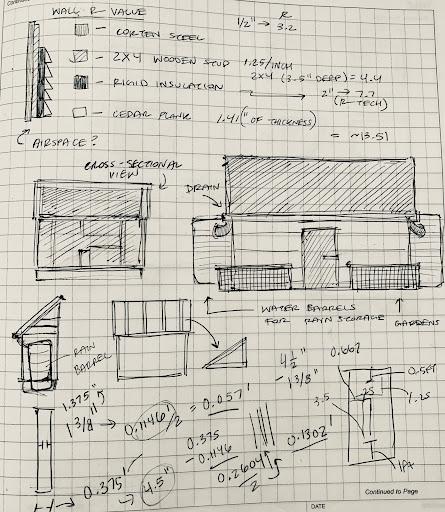 WALL R VALUE
1/2" → R 3.2
- CORTEN STEEL
- 2X4 WOODEN STUD 1.25/INCH
2X4 (3.5" DEEP) = 4.4
- RIGID INSULATION 2 → 2" → 7.7
(R TECH)
- CEDAR PLANK 1.41 (" OF THICKNESS)
= ~13.51
AIRSPACE?
CROSS-SECTIONAL
VIEW
DRAIN
WATER BARRELS
FOR RAIN STORAGE
GARDENS
RAIN
BARREL
1.375"
1 3/8" → 0.1146'/2 = 0.057'
4 1/2"
- 1 3/8"
0.667
0.375
- 0.1146
0.2604'
2
0.1302'
3.5
.25
1.25
0.375' → 4.5"
Continued to Page
DATE